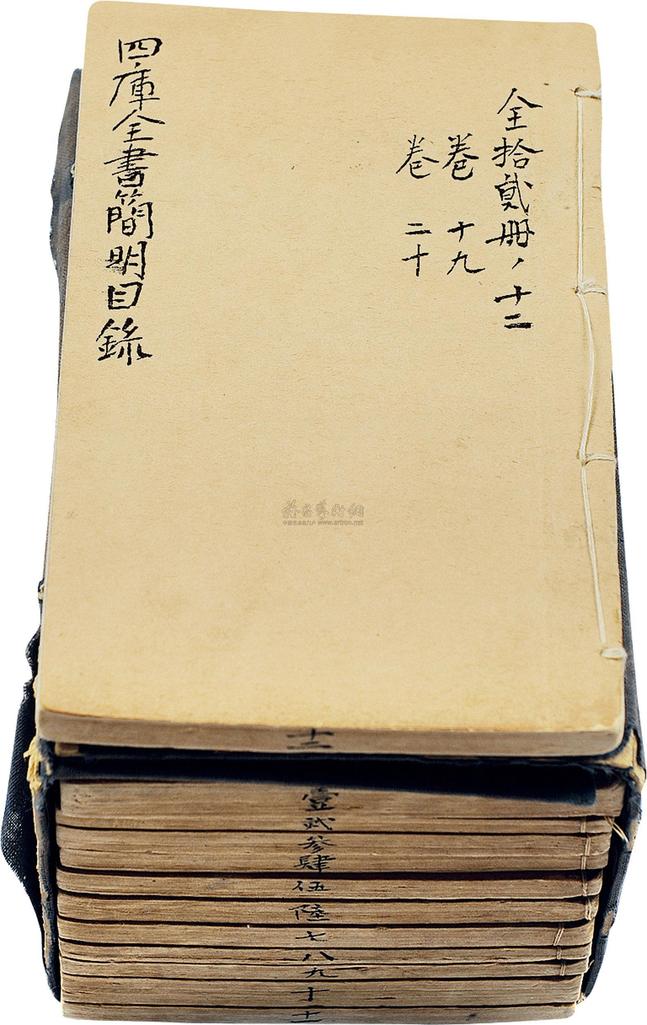 全拾貳冊ノ十二
卷 十九
卷 二十
四庫全書簡明目錄
十二
壹
貳
參
肆
伍
陸
七
八
九
十
十一
www.artron.net